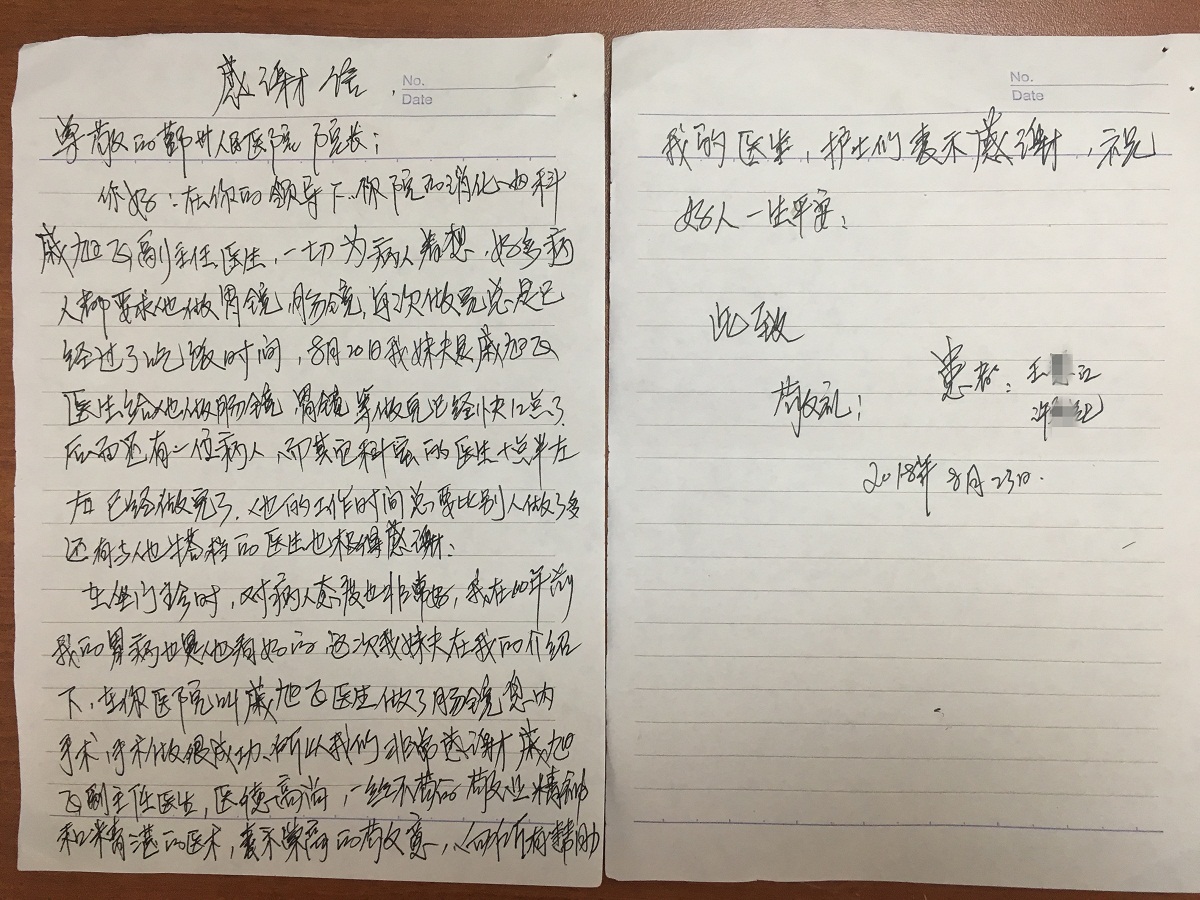 感谢信
No.
Date
尊敬的鄞州人民医院 院长:
你好:在你的领导下.你院的消化内科
戚旭飞副主任医生,一切为病人着想.好多病
人都要求他做胃镜,肠镜,每次做完总是已
经过了吃饭时间,8月20日我妹夫是戚旭飞
医生给他做肠镜,胃镜等做完已经快12点了
后面还有一位病人,而其它科室的医生十点半左
右已经做完了.他的工作时间总要比别人做了多
还有与他搭档的医生也值得感谢.
在坐门诊时,对病人态度也非常好,我在10年前
我的胃病也是他看好的,这次我妹夫在我的介绍
下,在你医院叫戚旭飞医生做了肠镜息肉
手术,手术做很成功,所以我们非常感谢戚旭
飞副主任医生,医德高尚,一丝不苟的敬业精神
和精湛的医术,表示崇高的敬意,向所有帮助
No.
Date
我的医生,护士们表示感谢,祝
好人一生平安:
此致
敬礼;
患者:王 江
许 纪
2018年8月23日.